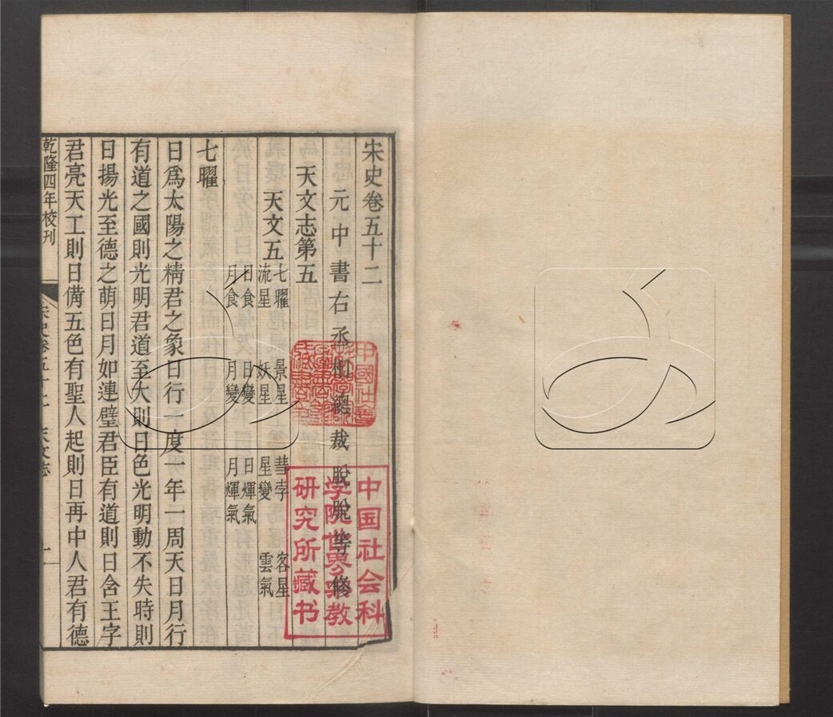 宋史卷五十二
元中書右丞相總裁脫脫等修
天文志第五
天文五
七曜 景星 彗孛 客星
流星 妖星 星變 雲氣
日食 日變 日煇氣
月食 月變 月煇氣
七曜
日爲太陽之精君之象日行一度一年一周天日月行
有道之國則光明君道至大則日色光明動不失時則
日揚光至德之萌日月如連璧君臣有道則日含王字
君亮天工則日備五色有聖人起則日再中人君有德
乾隆四年校刊
宋史卷五十二 天文志
一
中国社会科
学院世界宗教
研究所藏书